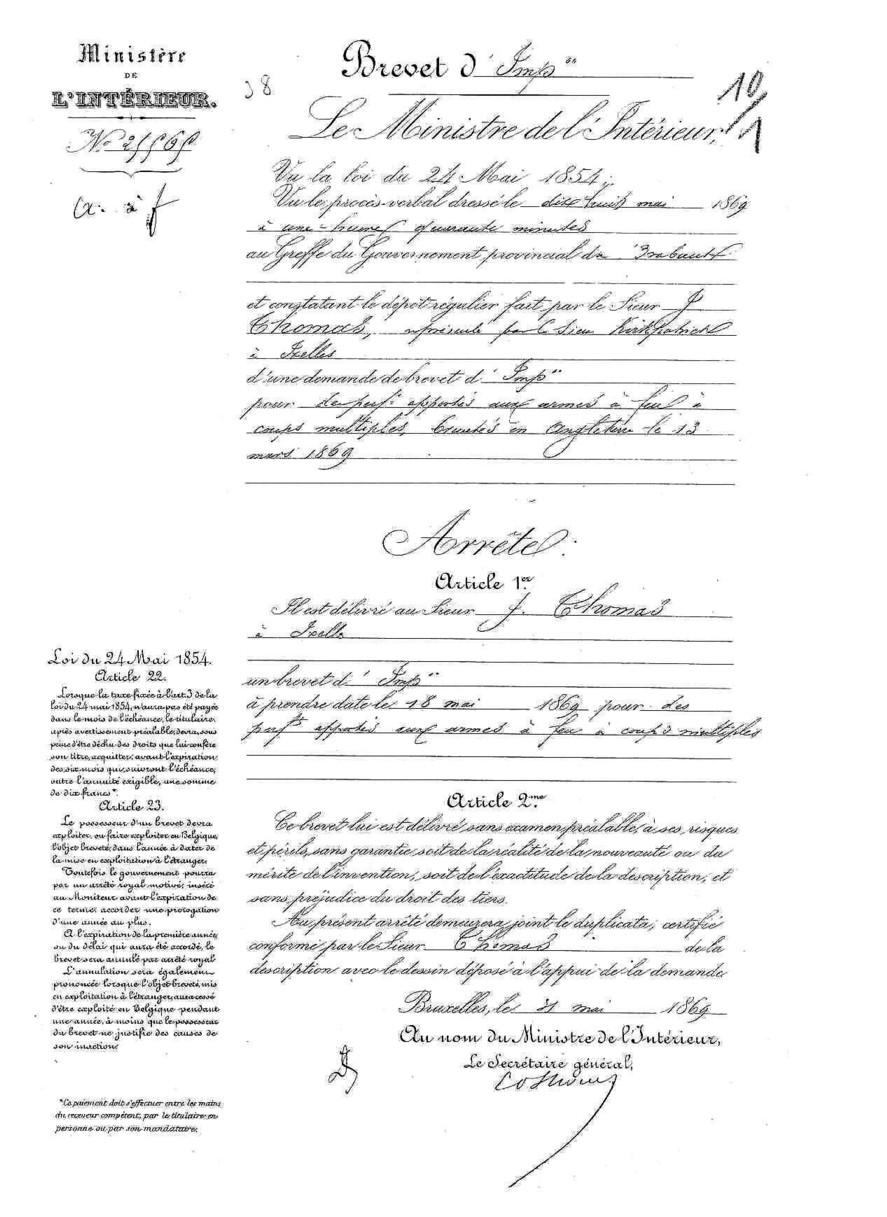 Ministère
DE
L'INTÉRIEUR.
a. à f
38
Brevet d' Imp^on
10/1
Le Ministre de l'Intérieur,
Vu la loi du 24 Mai 1854;
Vu le procès-verbal dressé le dix huit mai 1869
à une heure quarante minutes
au Greffe du Gouvernement provincial du Brabant
et constatant le dépôt régulier fait par le Sieur J
Thomas, représenté par le Sieur Kirkpatrick
à Ixelles
d'une demande de brevet d' Imp^on
pour des perf^ts apportés aux armes à feu à
coups multiples, brevetés en Angleterre le 13
mars 1869
Arrête:
Article 1^er.
Il est délivré au Sieur J. Thomas
à Ixelles
un brevet d' Imp^on
à prendre date le 18 mai 1869 pour des
perf^ts apportés aux armes à feu à coups multiples
Article 2^me.
Ce brevet lui est délivré sans examen préalable, à ses risques
et périls, sans garantie, soit de la réalité de la nouveauté ou du
mérite de l'invention, soit de l'exactitude de la description, et
sans préjudice du droit des tiers.
Au présent arrêté demeurera joint le duplicata, certifié
conforme par le Sieur Thomas de la
description avec le dessin déposé à l'appui de la demande
Bruxelles, le 31 mai 1869
Au nom du Ministre de l'Intérieur,
Le Secrétaire général,
Loi du 24 Mai 1854.
Article 22.
Lorsque la taxe fixée à l'art. 3 de la
loi du 24 mai 1854, n'aura pas été payée
dans le mois de l'échéance, le titulaire,
après avertissement préalable, devra, sous
peine d'être déchu des droits que lui confère
son titre, acquitter, avant l'expiration
des six mois qui suivront l'échéance,
outre l'annuité exigible, une somme
de dix francs*.
Article 23.
Le possesseur d'un brevet devra
exploiter, ou faire exploiter en Belgique,
l'objet breveté, dans l'année à dater de
la mise en exploitation à l'étranger.
Toutefois le gouvernement pourra
par un arrêté royal motivé, inséré
au Moniteur avant l'expiration de
ce terme, accorder une prorogation
d'une année au plus.
A l'expiration de la première année
ou du délai qui aura été accordé, le
brevet sera annulé par arrêté royal
L'annulation sera également
prononcée lorsque l'objet breveté, mis
en exploitation à l'étranger, aura cessé
d'être exploité en Belgique pendant
une année, à moins que le possesseur
du brevet ne justifie des causes de
son inaction.
*Ce paiement doit s'effectuer entre les mains
du receveur compétent, par le titulaire en
personne ou par son mandataire.